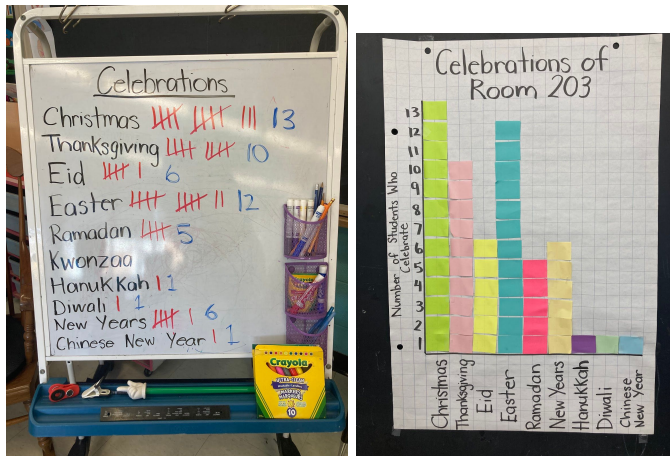 Celebrations
Christmas 13
Thanksgiving 10
Eid 6
Easter 12
Ramadan 5
Kwonzaa
Hanukkah 1
Diwali 1
New Years 6
Chinese New Year 1
Crayola
10
Celebrations of
Room 203
Number of Students Who
Celebrate
13
12
11
10
9
8
7
6
5
4
3
2
1
Christmas
Thanksgiving
Eid
Easter
Ramadan
New Years
Hanukkah
Diwali
Chinese
New Year